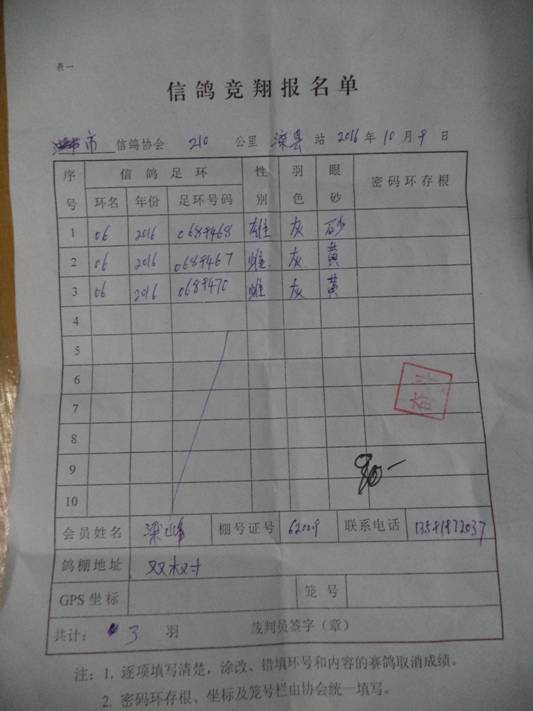 表一
信鸽竞翔报名单
市 信鸽协会 210 公里 滦县 站 2016 年 10 月 9 日
序号 信鸽足环 性别 羽色 眼砂 密码环存根
环名 年份 足环号码
1 06 2016 0689468 雄 灰 砂
2 06 2016 0689467 雌 灰 黄
3 06 2016 0689470 雌 灰 黄
4
5
6
7
8
9
10
会员姓名 梁 棚号证号 62009 联系电话
鸽棚地址 双
GPS坐标 笼号
共计： 3 羽 裁判员签字（章）
注：1. 逐项填写清楚，涂改、错填环号和内容的赛鸽取消成绩。
2. 密码环存根、坐标及笼号栏由协会统一填写。